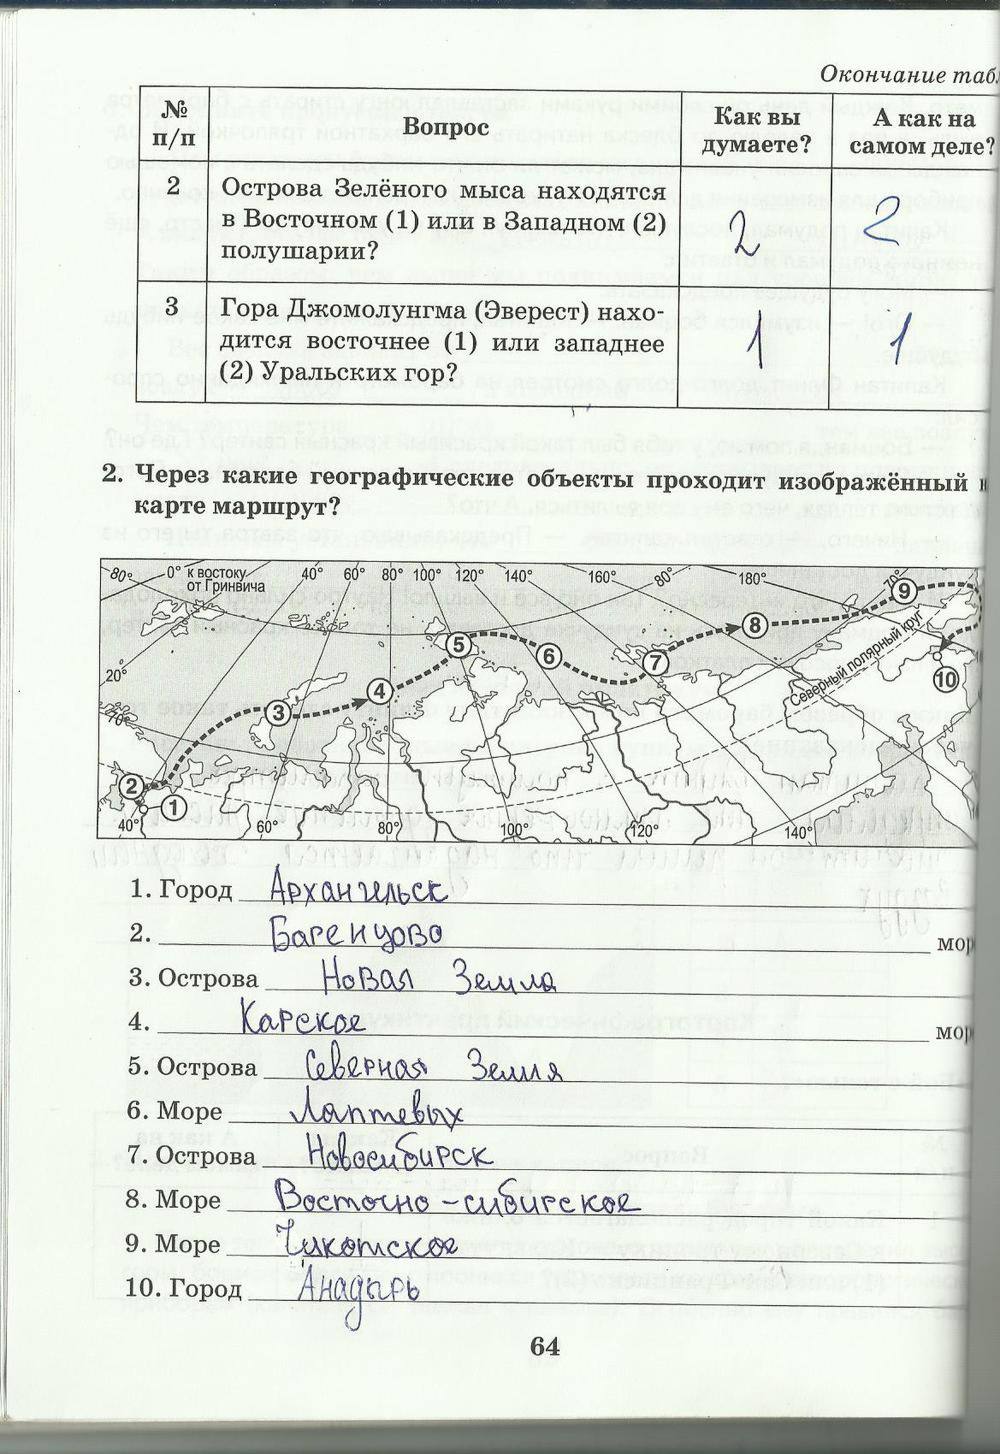 Окончание табл
№ п/п Вопрос Как вы думаете? А как на самом деле?
2 Острова Зелёного мыса находятся
в Восточном (1) или в Западном (2)
полушарии? 2 2
3 Гора Джомолунгма (Эверест) нахо-
дится восточнее (1) или западнее
(2) Уральских гор? 1 1
2. Через какие географические объекты проходит изображённый
карте маршрут?
80° 0° к востоку от Гринвича 40° 60° 80° 100° 120° 140° 160° 80° 180° 70°
20°
70°
Северный полярный круг
1 2 3 4 5 6 7 8 9 10
40° 60° 80° 100° 120° 140°
1. Город Архангельск
2. Баренцово мор
3. Острова Новая Земла
4. Карское мор
5. Острова Северная Земля
6. Море Лаптевых
7. Острова Новосибирск
8. Море Восточно-сибирское
9. Море Чукотское
10. Город Анадырь
64